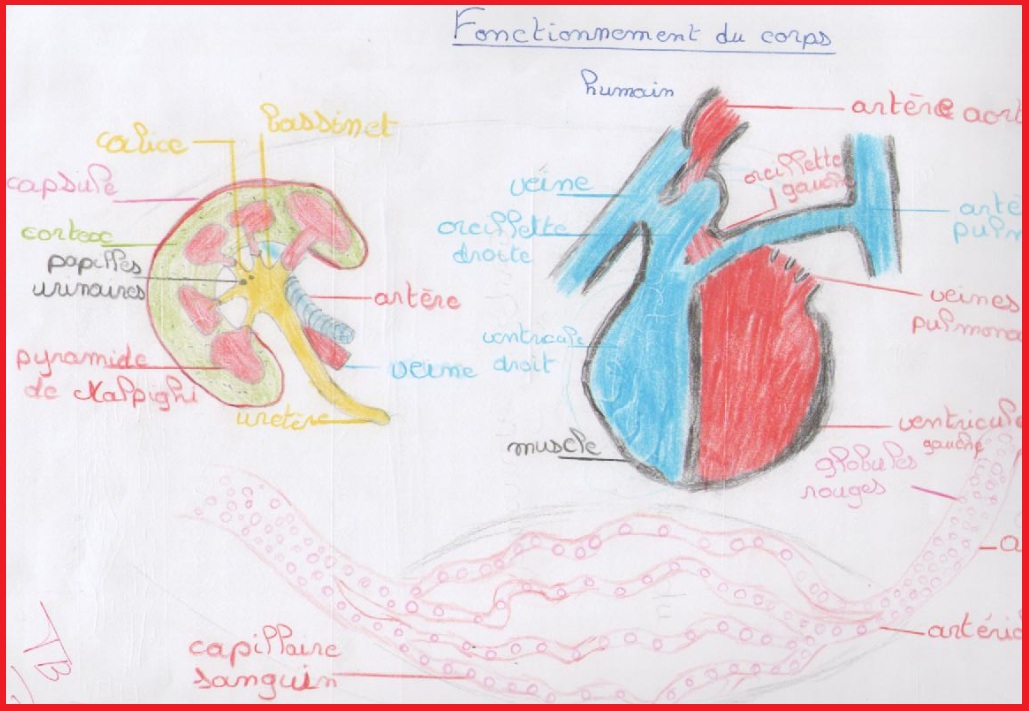 Fonctionnement du corps
humain
calice
bassinet
capsule
cortex
papilles
urinaires
pyramide
de Malpighi
artère
veine
uretère
artère aort
veine
oreillette
droite
oreillette
gauche
artè
pulm
veines
pulmona
ventricule
droit
muscle
ventricule
gauche
globules
rouges
a
artério
capillaire
sanguin
TB